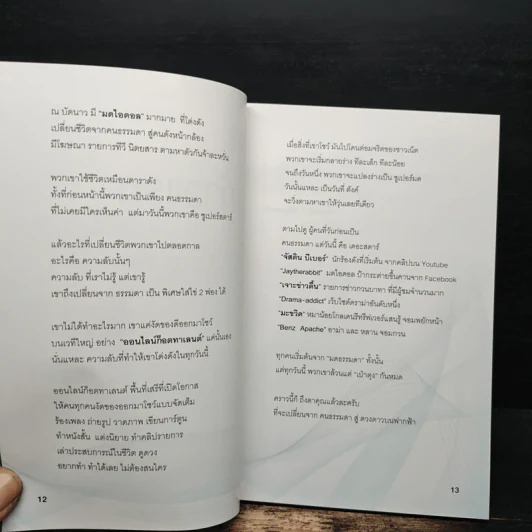 ณ บัดนาว มี “มดไอดอล” มากมาย ที่โด่งดัง
เปลี่ยนชีวิตจากคนธรรมดา สู่คนดังหน้ากล้อง
มีโฆษณา รายการทีวี นิตยสาร ตามหาตัวกันจ้าละหวั่น
พวกเขาใช้ชีวิตเหมือนดาราดัง
ทั้งที่ก่อนหน้านี้พวกเขาเป็นเพียง คนธรรมดา
ที่ไม่เคยมีใครเห็นค่า แต่มาวันนี้พวกเขาคือ ซูเปอร์สตาร์
แล้วอะไรที่เปลี่ยนชีวิตพวกเขาไปตลอดกาล
อะไรคือ ความลับนั้นๆ
ความลับ ที่เราไม่รู้ แต่เขารู้
เขาถึงเปลี่ยนจาก ธรรมดา เป็น พิเศษใส่ไข่ 2 ฟอง ได้
เขาไม่ได้ทำอะไรมาก เขาแค่งัดของดีออกมาโชว์
บนเวทีใหญ่ อย่าง “ออนไลน์ก็อตทาเลนต์” แค่นั้นเอง
นั่นแหละ ความลับที่ทำให้เขาโด่งดังในทุกวันนี้
ออนไลน์ก็อตทาเลนต์ พื้นที่เสรีที่เปิดโอกาส
ให้คนทุกคนงัดของออกมาโชว์แบบจัดเต็ม
ร้องเพลง ถ่ายรูป วาดภาพ เขียนการ์ตูน
ทำหนังสั้น แต่งนิยาย ทำคลิปรายการ
เล่าประสบการณ์ในชีวิต ดูดวง
อยากทำ ทำได้เลย ไม่ต้องสนใคร
12
เมื่อสิ่งที่เขาโชว์ มันไปโดนต่อมจริตของชาวเน็ต
พวกเขาจะเริ่มกลายร่าง ทีละเล็ก ทีละน้อย
จนถึงวันหนึ่ง พวกเขาจะแปลงร่างเป็น ซูเปอร์มด
วันนั้นแหละ เป็นวันที่ ตังค์
จะวิ่งตามหาเขาให้วุ่นเลยทีเดียว
ตามไปดู ผู้คนที่วันก่อนเป็น
คนธรรมดา แต่วันนี้ คือ เดอะสตาร์
“จัสติน บีเบอร์” นักร้องดังที่เริ่มต้น จากคลิปบน Youtube
“Jaytherabbit” มดไอดอล ป้ากระต่ายชิ้นคานจาก Facebook
“เจาะข่าวตื้น” รายการข่าวกวนบาทา ที่มีผู้ชมจำนวนมาก
“Drama-addict” เว็บไซต์ดราม่าอันดับหนึ่ง
“มะขวิด” หมาน้อยโกลเดนรีทรีฟเวอร์แสนรู้ จอมพยักหน้า
“Benz Apache” อาม่า และ หลาน จอมกวน
ทุกคนเริ่มต้นจาก “มดธรรมดา” ทั้งนั้น
แต่ทุกวันนี้ พวกเขาล้วนแต่ “เป๋าตุง” กันหมด
คราวนี้ก็ ถึงตาคุณแล้วละครับ
ที่จะเปลี่ยนจาก คนธรรมดา สู่ ดวงดาวบนฟากฟ้า
13